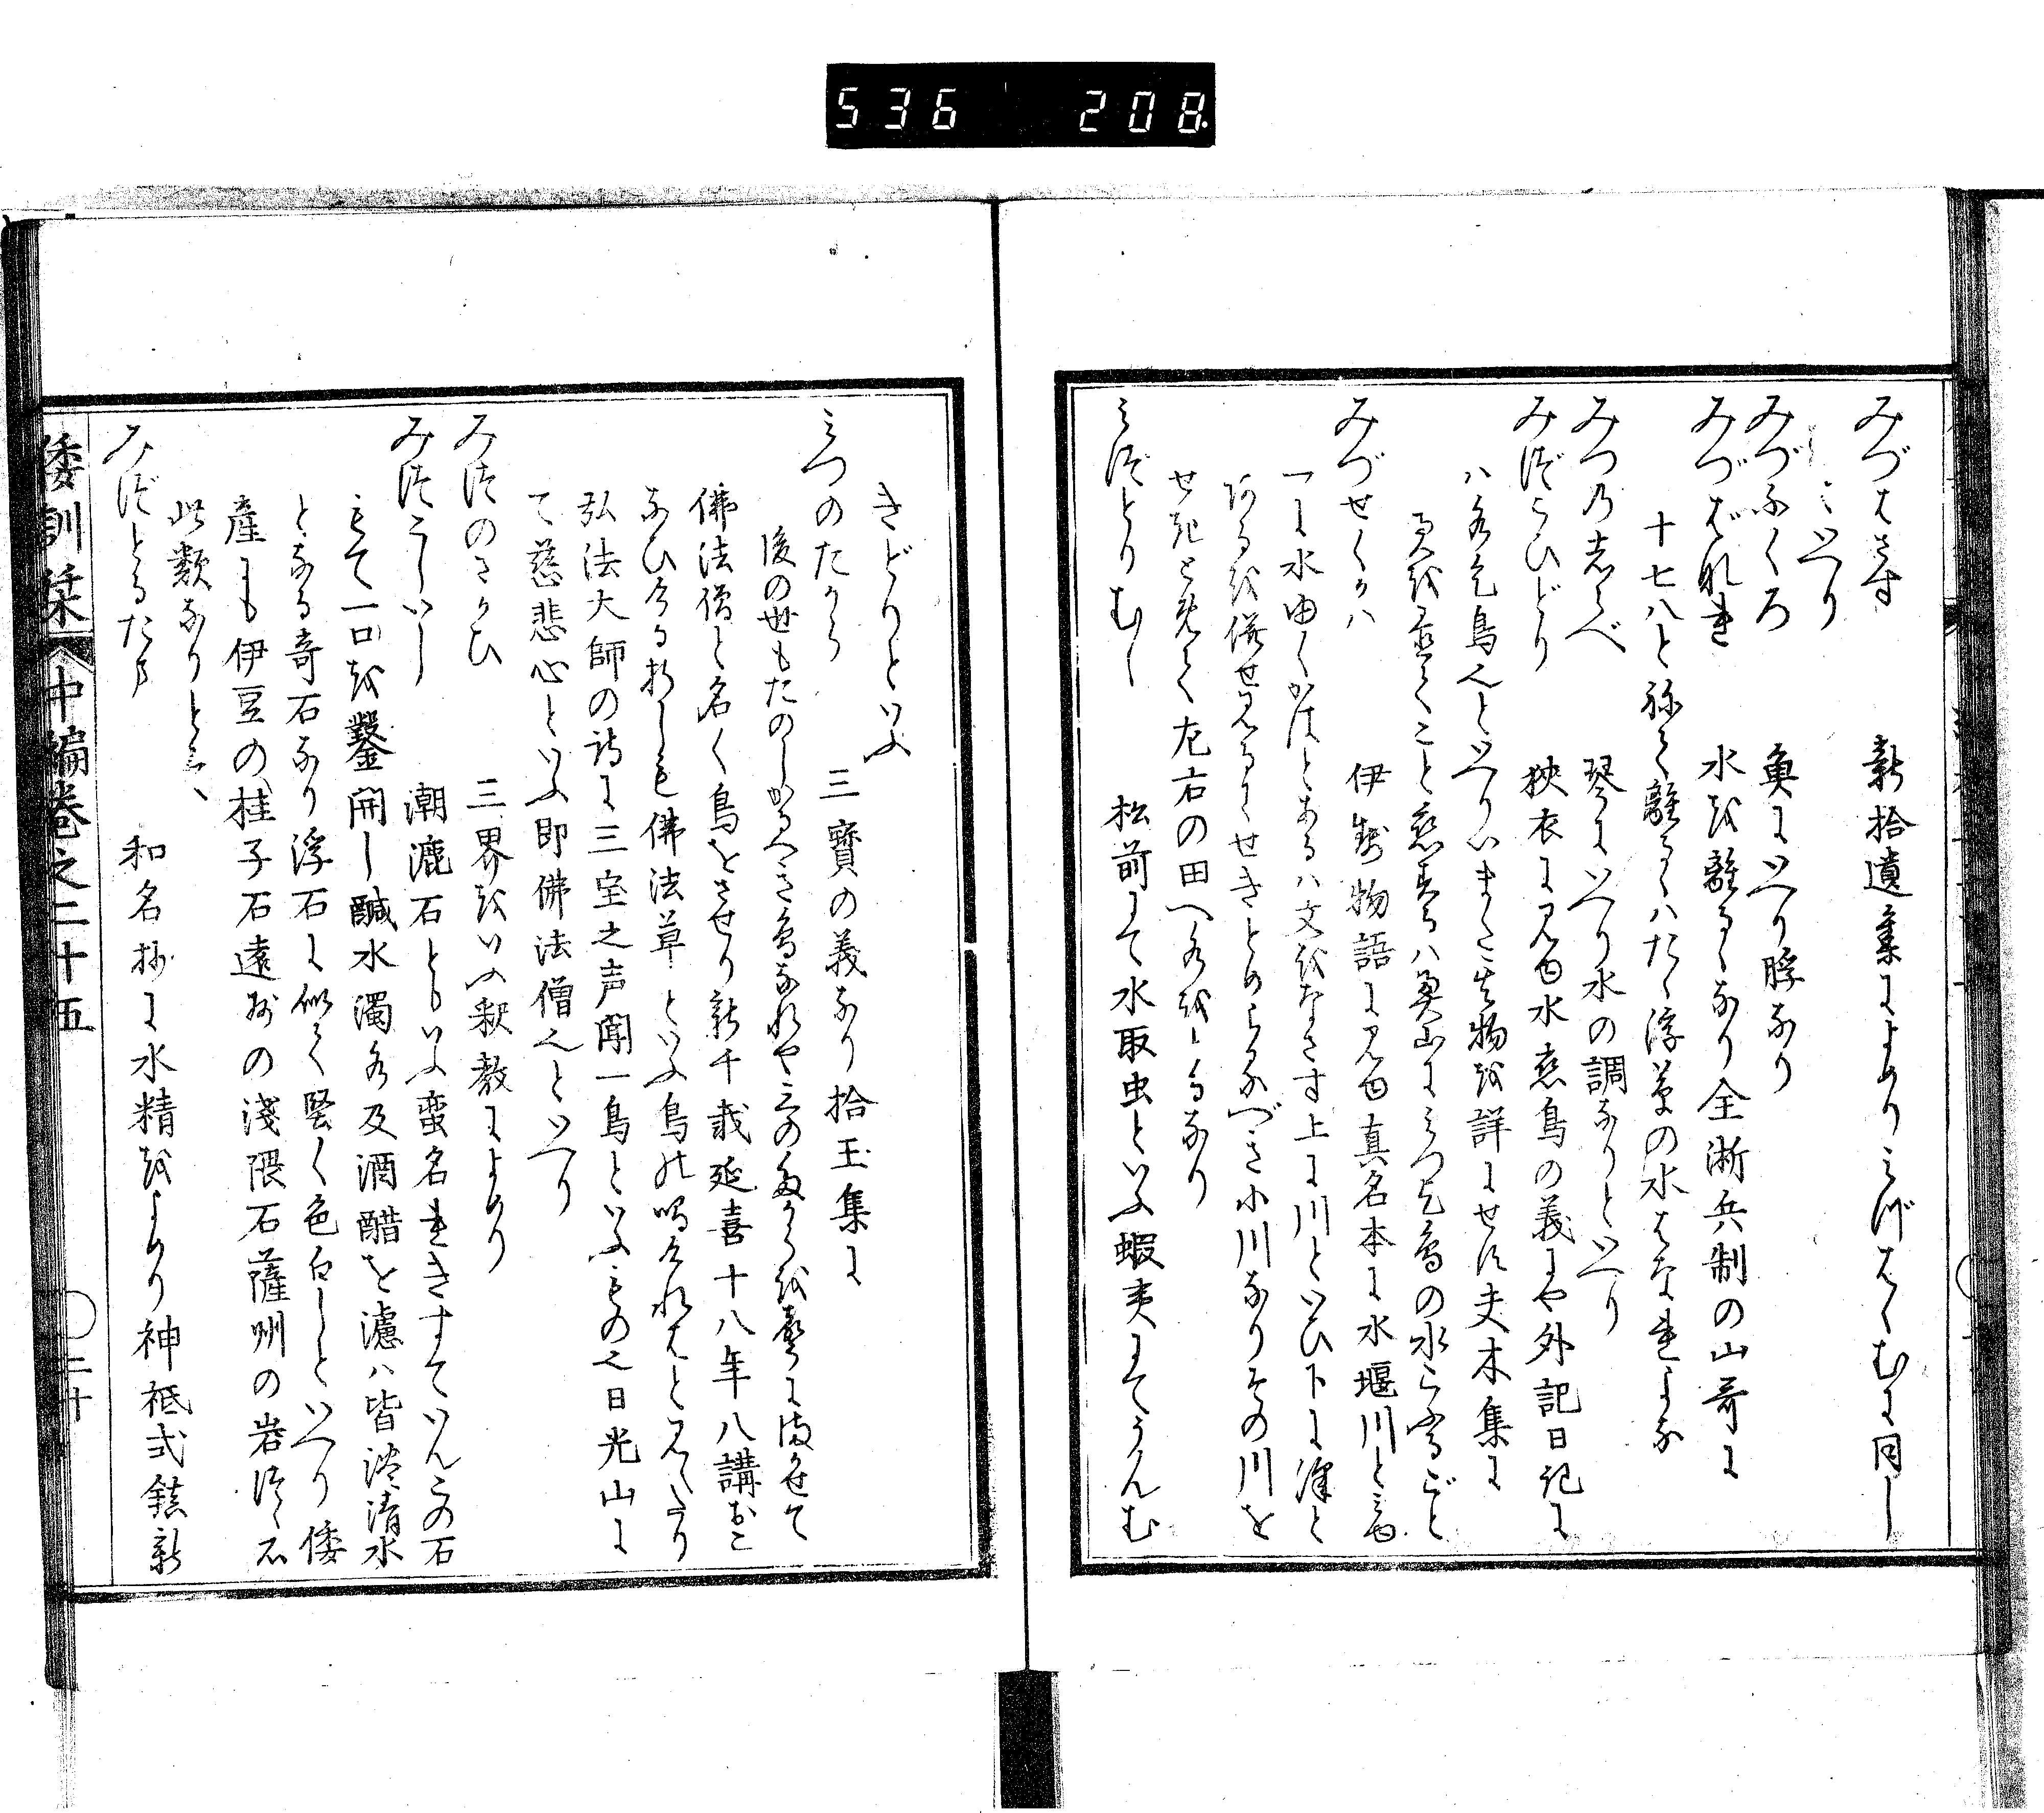 536 208
みづはさす 新拾遺集によめりみづはくむに同し
といへり
みづふくろ 魚にいへり脬なり
みづばなれ 水を離るゝなり全浙兵制の山哥に
十七八と孫て離るゝはたゝ浮草の水はなれよな
みつ乃志らべ 琴にいへり水の調なりといへり
みづこひどり 狭衣に見ゆ水恋鳥の義にや外記日記に
ハ水乞鳥といへりいまた其物を詳にせす夫木集に
伊勢物語に見ゆ真名本に水堰川とみゆ
みづせくかハ
一に水ゆくかはとあるハ文をなさす上に川といひ下に津と
あるを併せ見るにせきとめらるべき小川なりその川を
せきとめて左右の田へ水をしくなり
みづとりむし 松前にて水取虫といふ蝦夷にてうんむ
きどりといふ
みつのたから 三寶の義なり拾玉集に
後の世もたのしかるべき鳥なれや三の宝を声にまかせて
佛法僧と名く鳥をさせり新千載延喜十八年八講おこ
なひける折しも佛法草といふ鳥の鳴けれはと見えたり
弘法大師の詩に三宝之声聞一鳥といふもの也日光山に
て慈悲心といふ即佛法僧也といへり
みつのさかひ 三界をいふ釈教によめり
みづこしいし 潮漉石ともいふ蛮名れきすていんこの石
もて一口を鑿開し鹹水濁水及酒醋を濾ハ皆淡清水
となる奇石なり浮石に似て堅く色白しといへり倭
産にも伊豆の桂子石遠州の淺隈石薩州の岩つゝ石
此類なりとそ
みづとるたま 和名抄に水精をよめり神祇式鎮新
倭訓栞 中編巻之二十五 〇二十